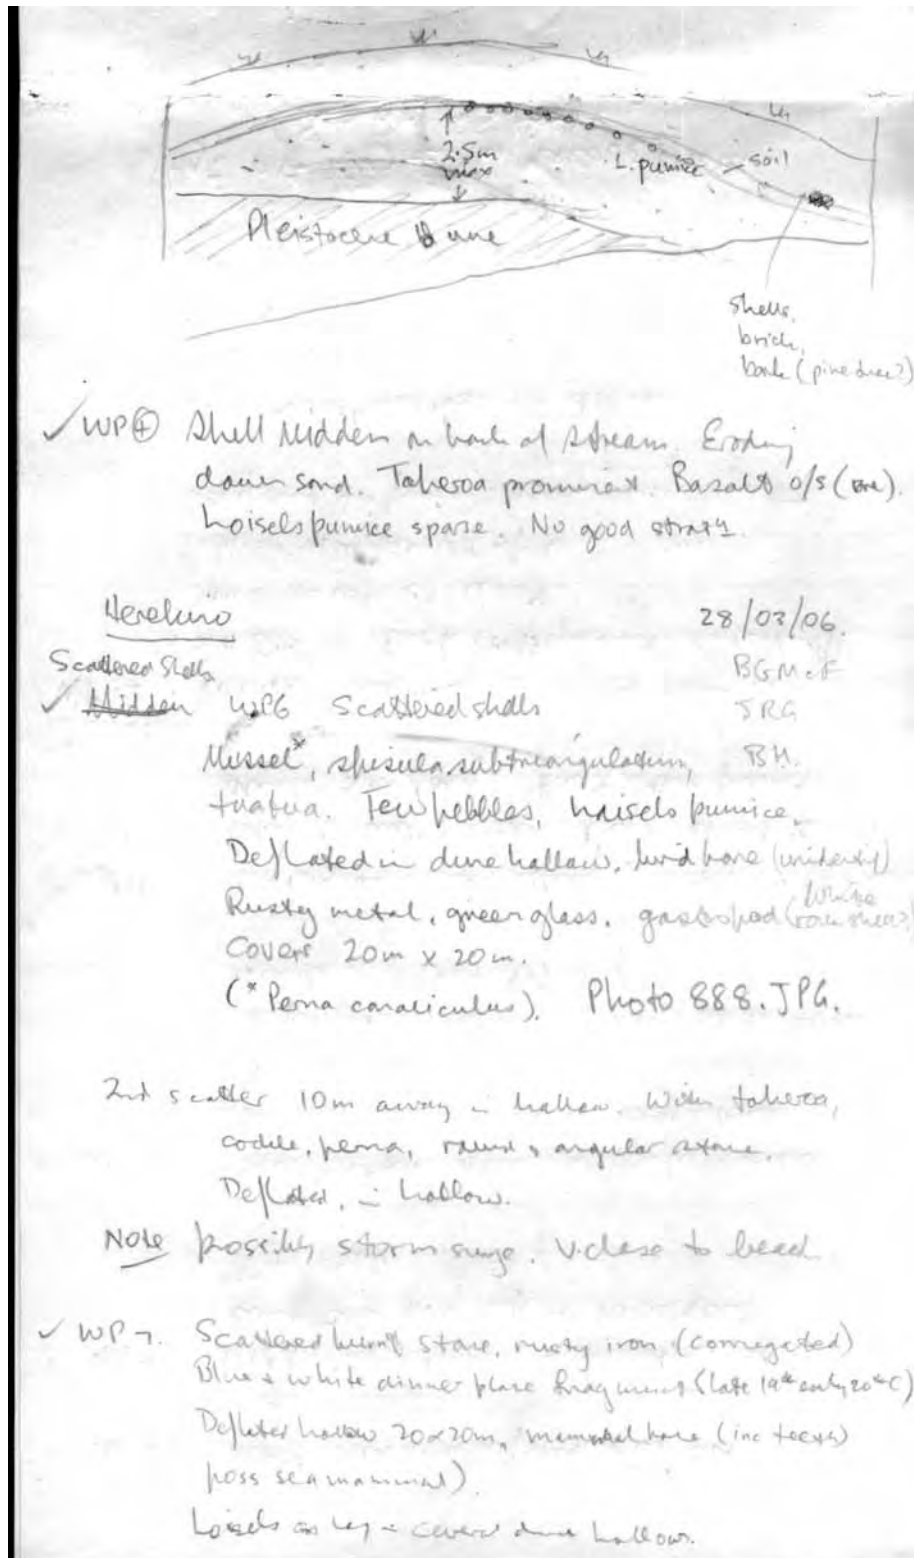 2.5m
max
L. pumice
soil
Pleistocene Dune
Shells,
brick,
bark (pine tree?)
✓ WP④ Shell Midden on bank of stream. Eroding
down sand. Toheroa prominent. Basalt o/s (one).
Loisels pumice sparse. No good strat
Herekino 28/03/06.
Scattered Shells BGMcF
✓ Midden WP6 Scattered shells JRG
Mussel*, spisula subtriangulatum, BH.
tuatua. Few pebbles, Loisels pumice.
Deflated in dune hollow, bird bone (unidentif)
Rusty metal, green glass. gastropod (White rock shell?)
Covers 20m x 20m.
(* Perna canaliculus). Photo 888.JPG.
2nd scatter 10m away in hollow. With toheroa,
cockle, perna, round & angular stone.
Deflated, in hollow.
Note possibly storm surge. V. close to beach
✓ WP7. Scattered burnt stone, rusty iron, (corrugated)
Blue & white dinner plate fragments (late 19th early 20th C)
Deflated hollow 20x20m, mammal bone (inc teeth)
poss sea mammal).
Loisels as lag in several dune hollows.